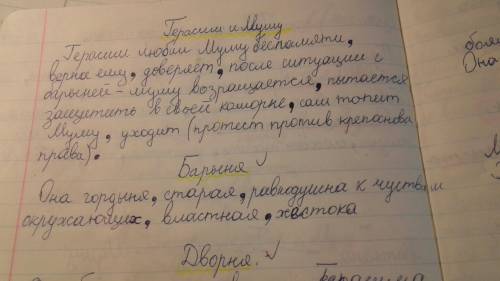 Герасим и Муму
Герасим любил Муму беспамяти,
верна ему, доверяет, после ситуации с
барыней - муму возращается, пытается
защитить в своей каморке, сам топит
Муму, уходит (протест против крепанова
права).
Барыня
Она гордыня, старая, равнодушна к чуствам
окружающих, властная, жестока
Дворня.
боль
Она